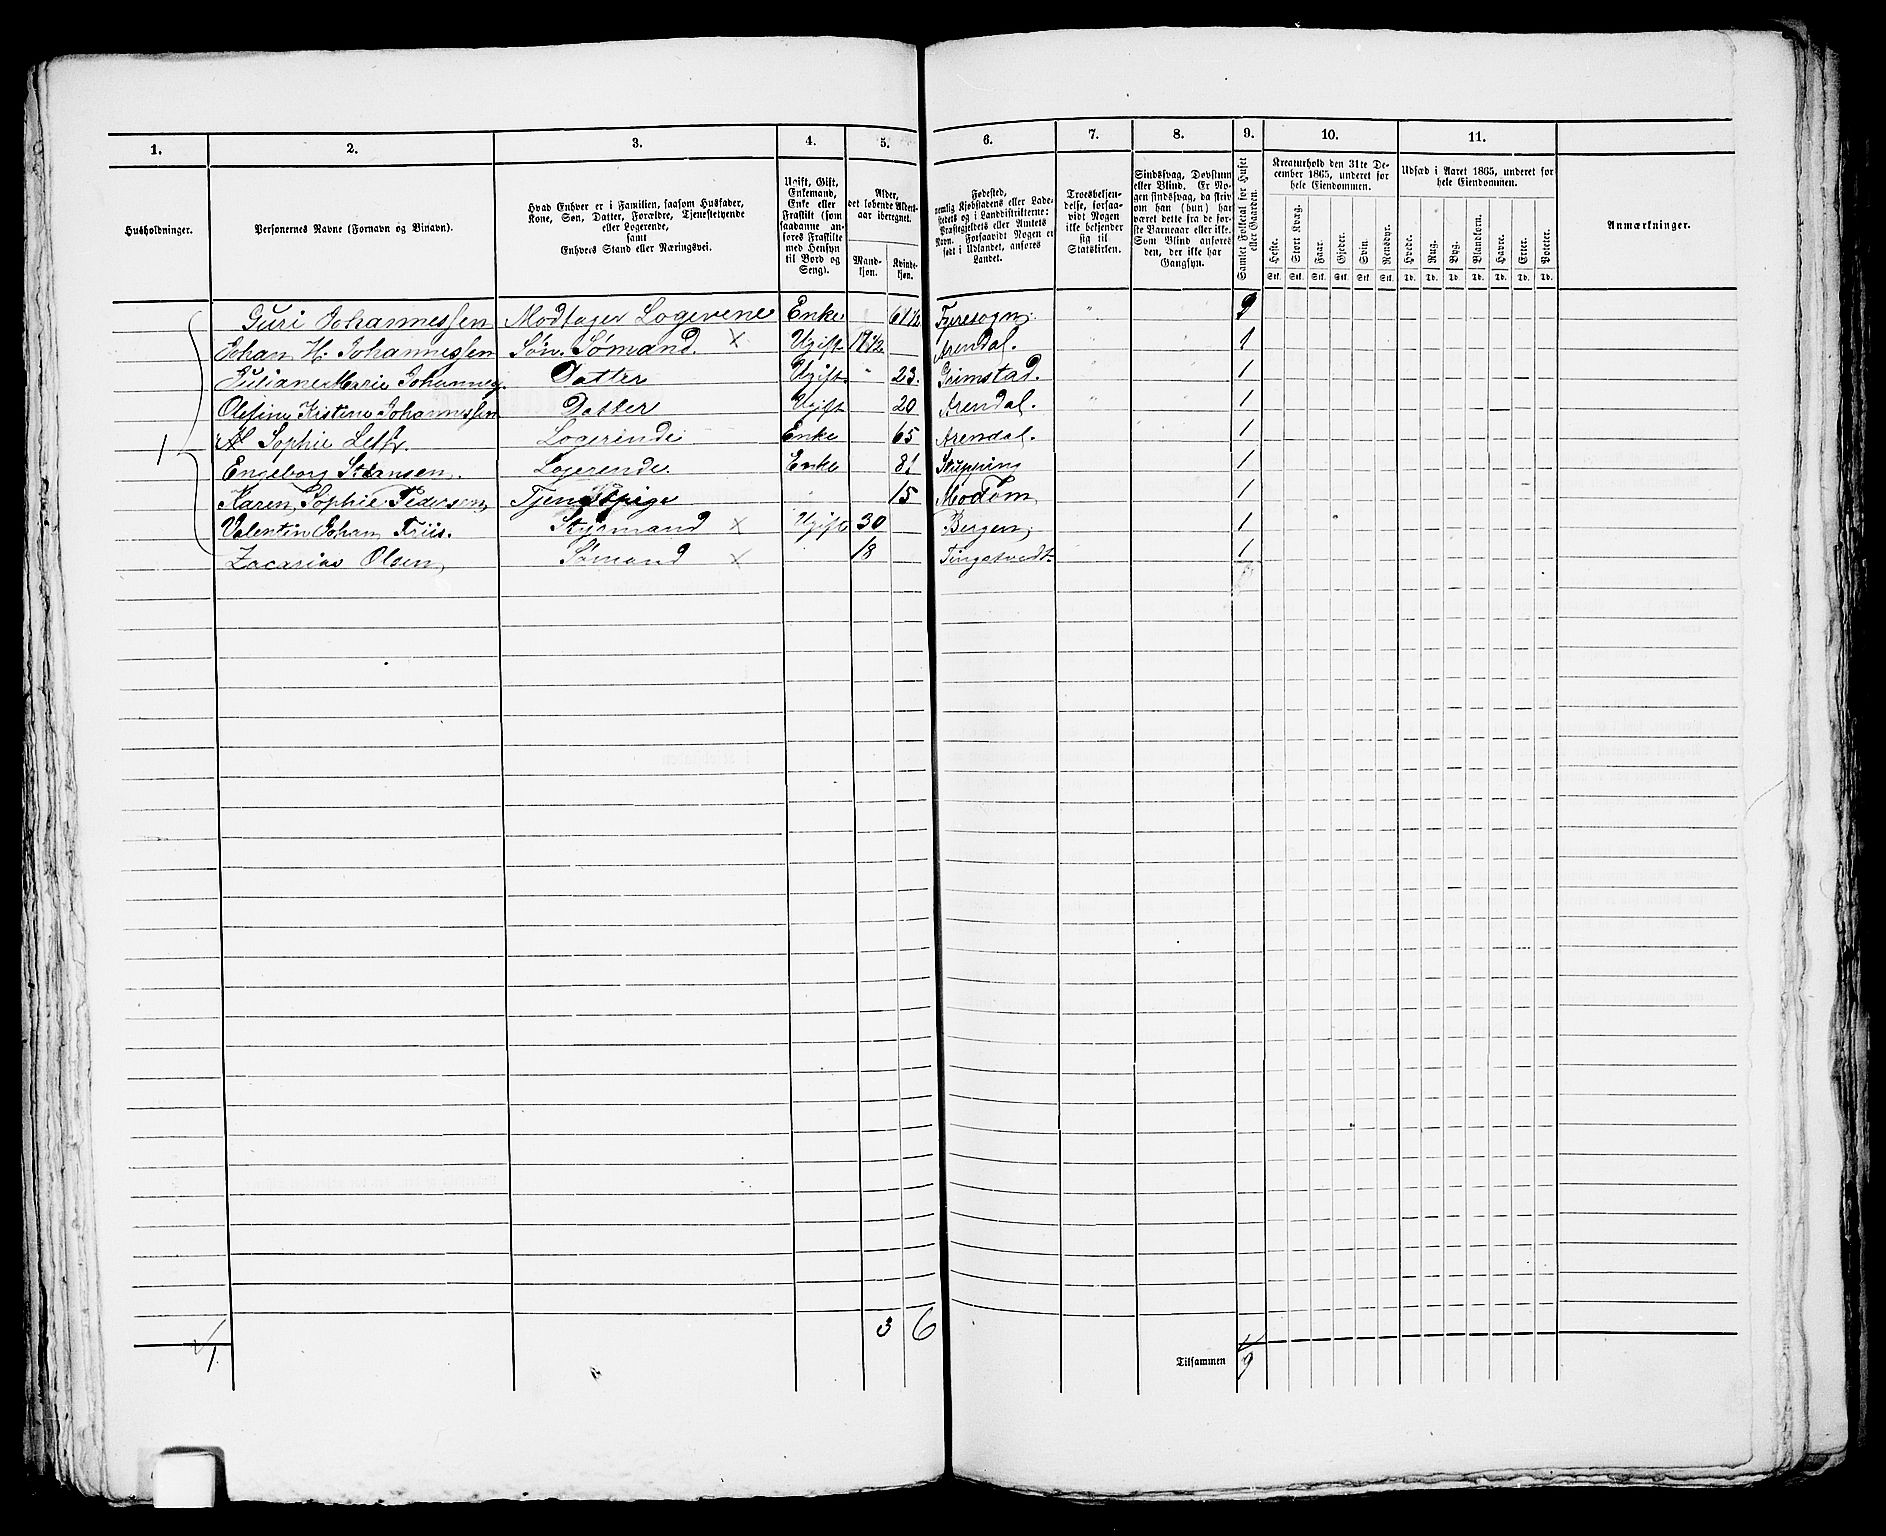 1. 2. 3. 4. 5. 6. 7. 8. 9. 10. 11.
Husholdninger.
Personernes Navne (Fornavn og Binavn).
Hvad Enhver er i Familien, saasom Husfader, Kone, Søn, Datter, Forældre, Tjenestetyende eller Logerende, samt Enhvers Stand eller Næringsvei.
Ugift, Gift, Enkemand, Enke eller Fraskilt (som saadanne anføres Fraskilte med Hensyn til Bord og Seng).
Alder, det løbende Alders-aar iberegnet.
Mandkjøn. Kvindekjøn.
Fødested, nemlig Kjøbstadens eller Ladestedets og i Landdistrikterne: Præstegjeldets eller Annexets Navn. Forsaavidt Nogen er født i Udlandet, anføres Landet.
Troesbekjendelse, forsaavidt Nogen ikke bekjender sig til Statskirken.
Sindssvag, Døvstum eller Blind. Er Nogen sindssvag, da skriv om han (hun) har været det fra de første Barneaar eller ikke. Som Blind anføres den, der ikke har Gangsyn.
Samlet Folketal for Huset eller Gaarden.
Kreaturhold den 31te December 1865, underet for hele Eiendommen.
Heste. Stort Kvæg. Faar. Gjeder. Svin. Rensdyr.
Stk. Stk. Stk. Stk. Stk. Stk.
Udsæd i Aaret 1865, underet for hele Eiendommen.
Hvede. Rug. Byg. Blandkorn. Havre. Erter. Poteter.
Td. Td. Td. Td. Td. Td. Td.
Anmærkninger.
Guri Johannessen Modtager Logerene Enke 61 1/2 Fyresogn. 9
Johan H. Johannessen Søn. Sømand. X Ugift 17 1/2 Arendal. 1
Juliane Marie Johannes. Datter Ugift 23. Grimstad. 1
Olefine Kistene Johannessen Datter Ugift 20 Arendal. 1
1 Sophie Logerinde Enke 65 Arendal. 1
Engeborg Logerende Enke 81 1
Karen Sophie Pedersen, Tjenestpige 15 Modom, 1
Valentin Johan Friis. Styrmand X Ugift 30 Bergen, 1
Zacarias Olsen, Sømand X 18 Tingstvedt 1
3 6
1. Tilsammen 9